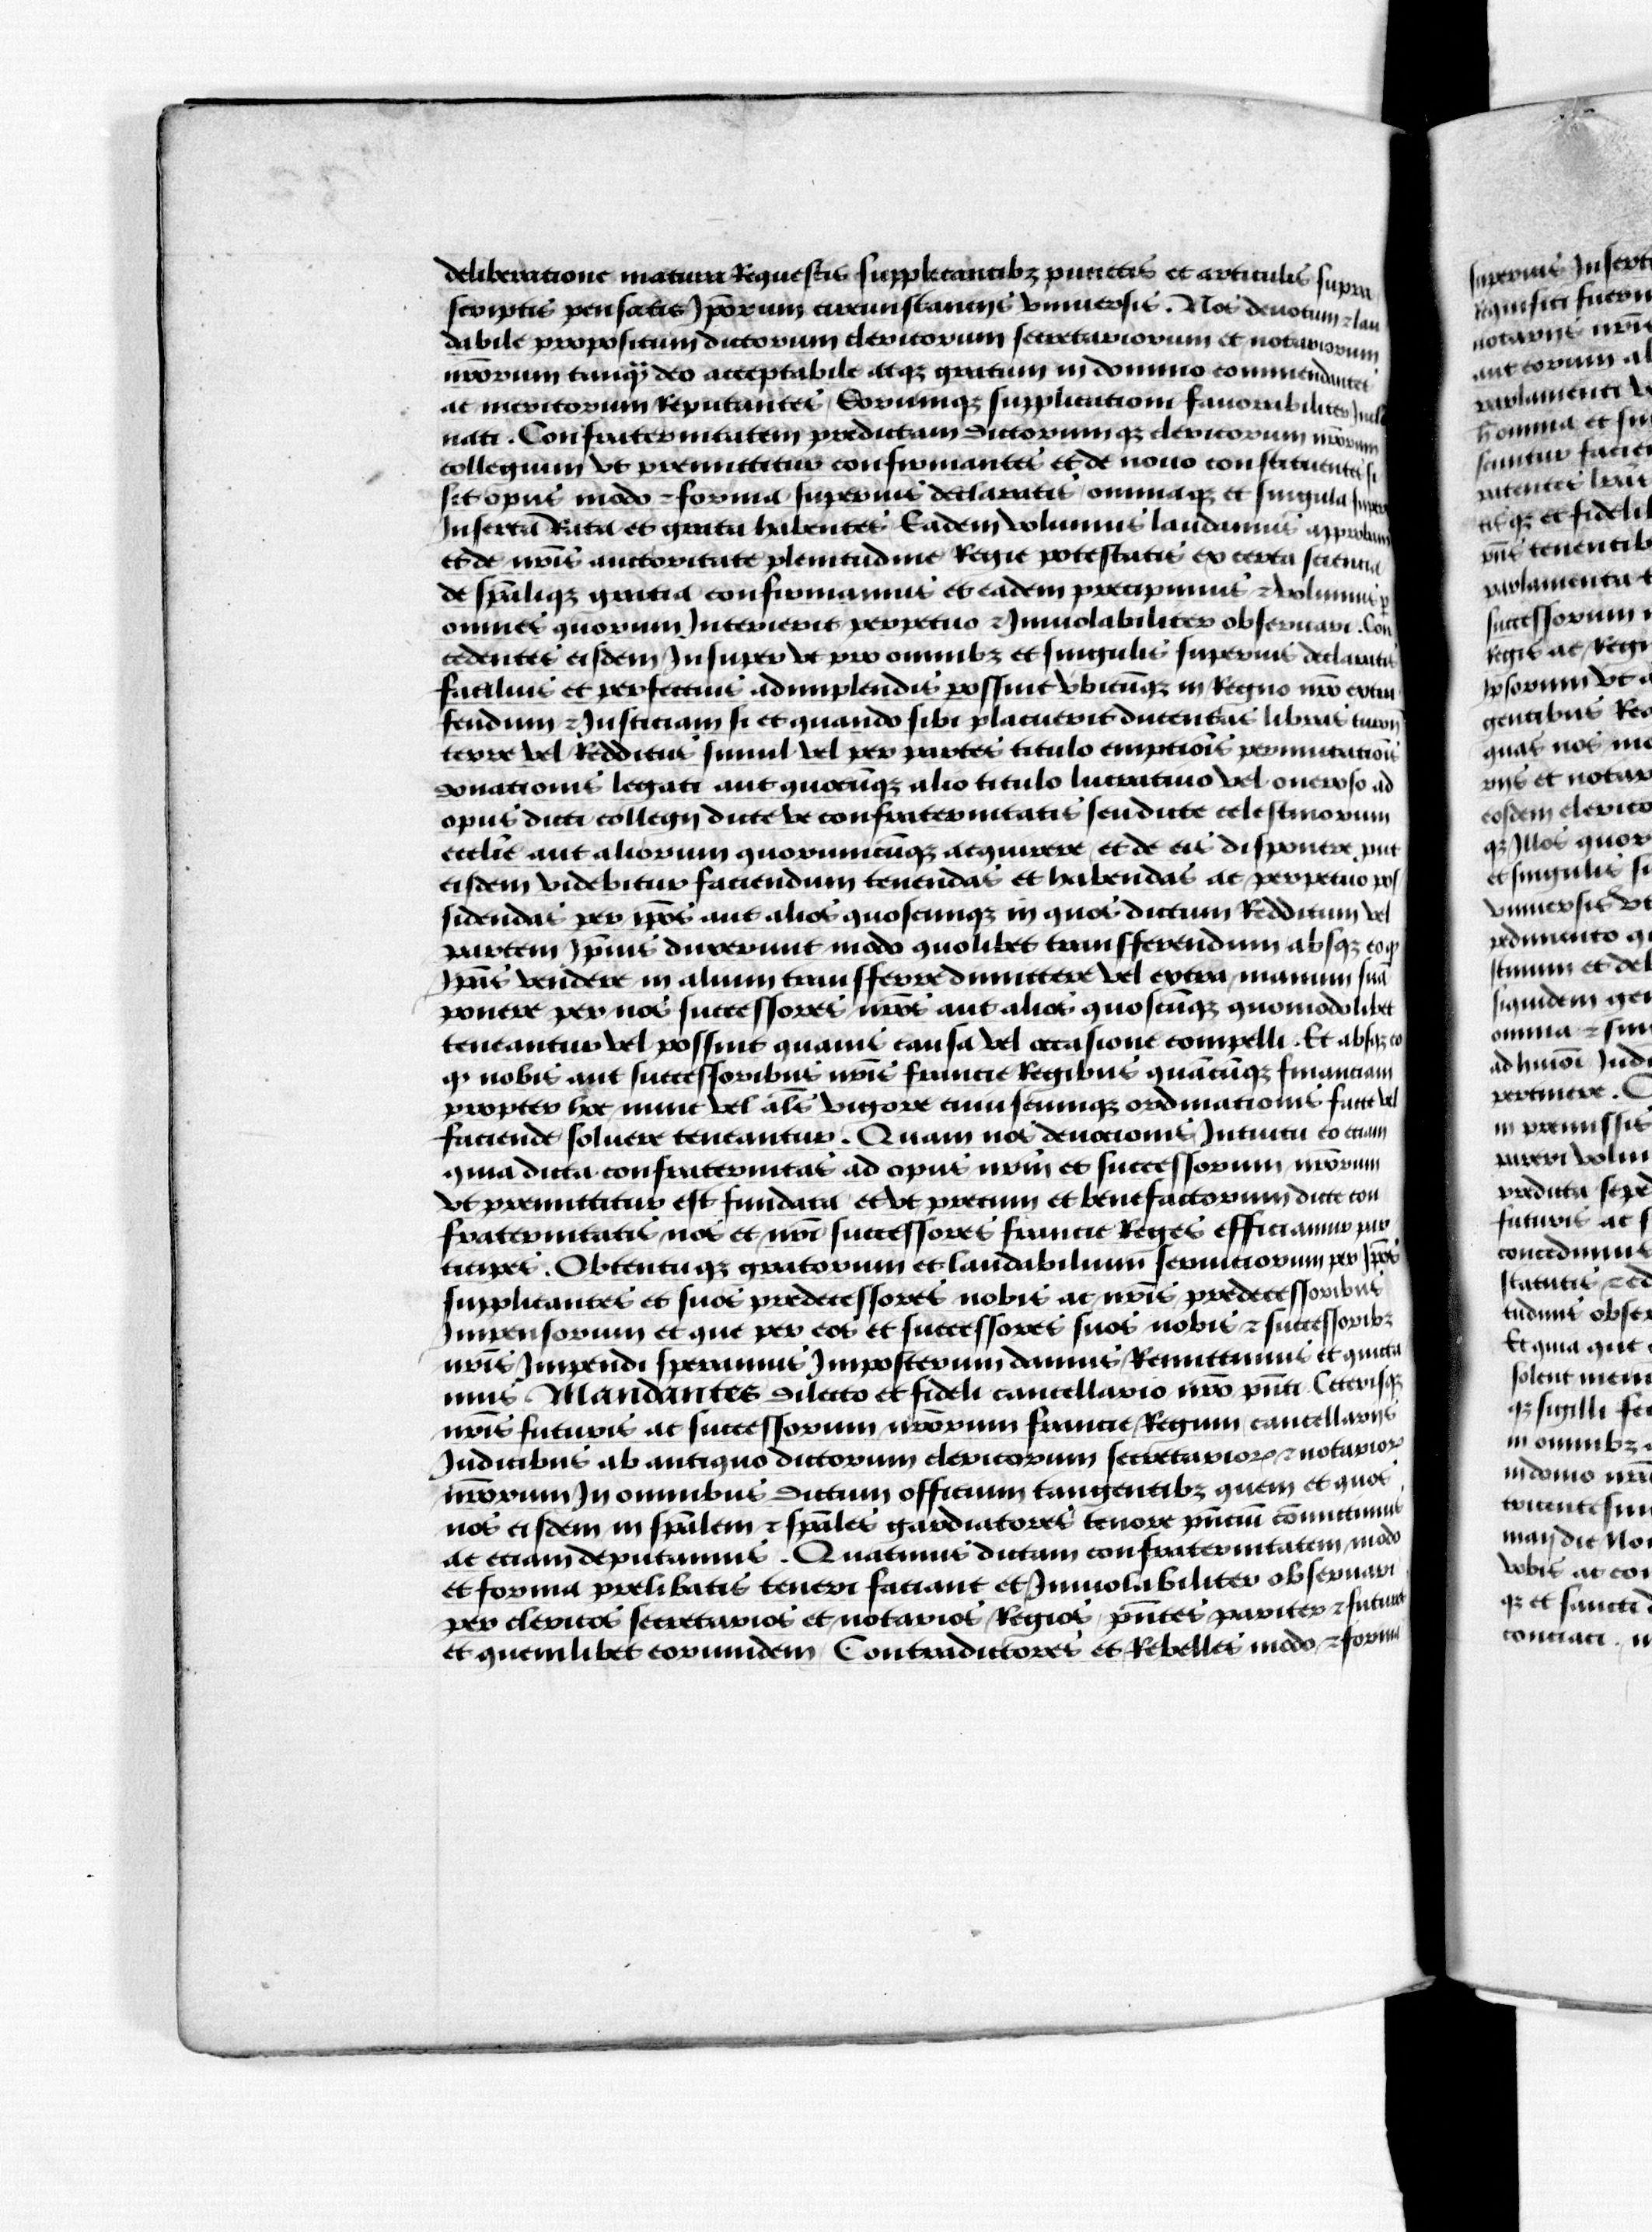 deliberatione matura Requestis supplicantibz punctis et articulis supra
scriptis pensatis Ip̄orum circunstancijs vniuersis. Nos deuotum ⁊ lau
dabile propositum dictorum clericorum secretariorum et notariorum
nr̄orum tanqȝ deo acceptabile atqȝ gratum in domino commendantes
ac meritorum Reputantes Eorumqȝ supplicationi fauorabiliter Incli
nati. Confraternitatem predictam dictorumqȝ clericorum nr̄orum
collegium vt premittitur confirmantes et de nouo constituentes si
sit opus modo ⁊ forma superius declaratis omniaqȝ et singula super
Inserta Rata et grata habentes Eadem volumus laudamus approbam
et de nr̄is auctoritate plenitudine Regie potestatis ex certa sciencia
de sp̄aliqȝ gratia confirmamus et eadem precipimus ⁊ volumus p
omnes quorum Intererit perpetuo ⁊ Inuiolabiliter obseruari. Con
cedentes eisdem Insuper vt pro omnibz et singulis superius declaratis
facilius et perfectius adimplendis possint vbicūqȝ in Regno nr̄o extra
feudum ⁊ Justiciam si et quando sibi placuerit ducentas libras turon̄
terre vel Redditus simul vel per partes titulo emptiōis permutatiōis
donationis legati aut quocūqȝ alio titulo lucratiuo vel oneroso ad
opus dicti collegij dicte ve confraternitatis seu dicte celestinorum
eccl̄ie aut aliorum quorumcūqȝ acquirere et de eis disponere put
eisdem videbitur faciendum tenendas et habendas ac perpetuo pos
sidendas per ip̄os aut alios quoscunqȝ in quos dictum Redditum vel
partem Ip̄ius duxerunt modo quolibet transfferendum absqȝ eo qꝫ
Ip̄as vendere in alium transfferre dimittere vel extra manum suā
ponere per nos successores nr̄os aut alios quoscūqȝ quomodolibet
teneantur vel possint quauis causa vel occasione compelli. Et absqȝ eo
qꝫ nobis aut successoribus nr̄is francie Regibus quācūqȝ financiam
propter hoc nunc vel al̄s vigore cuiuscumqȝ ordinationis facte vel
faciende soluere teneantur. Quam nos deuocionis Intuitu eo etiam
quia dicta confraternitas ad opus nr̄m et successorum nr̄orum
vt premittitur est fundata et vt precum et benefactorum dicte con
fraternitatis nos et nr̄i successores francie Reges efficiamur par
ticipes. Obtentuqȝ gratorum et laudabilium seruiciorum per Ip̄os
supplicantes et suos predecessores nobis ac nr̄is predecessoribus
Impensorum et que per eos et successores suos nobis ⁊ successoribz
nr̄is Impendi speramus Imposterum damus Remittimus et quicta
mus. Mandantes dilecto et fideli cancellario nr̄o pn̄ti Ceterisqȝ
nr̄is futuris ac successorum nr̄orum francie Regum cancellarijs
Judicibus ab antiquo dictorum clericorum secretarioꝝ ⁊ notarioꝝ
nr̄orum In omnibus dictum officium tangentibz quem et quos
nos eisdem in sp̄alem ⁊ sp̄ales gardiatores tenore pn̄ciū cōmittimus
ac etiam deputamus. Quatinus dictam confraternitatem modo
et forma prelibatis teneri faciant et Inuiolabiliter obseruari
per clericos secretarios et notarios Regios pn̄tes pariter ⁊ futuros
et quemlibet eorumdem Contradictores et Rebelles modo ⁊ forma